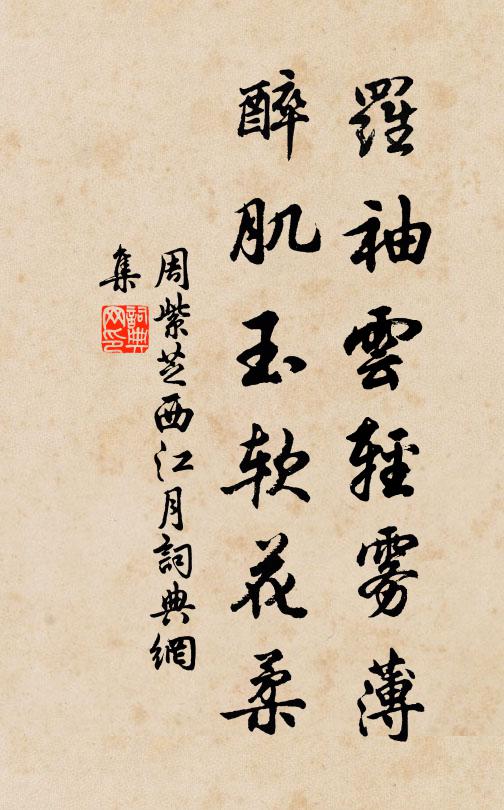 羅袖雲輕霧薄
醉肌玉軟花柔
周紫芝西江月詞典網
集
詞典
网印